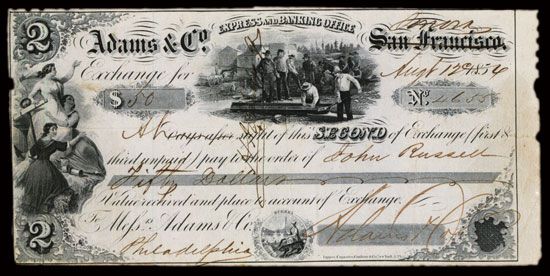 EXPRESS AND BANKING OFFICE
Sonora
2 Adams & Co. San Francisco,
Exchange for Augt 12th 1854
$ 50 No.
At days after sight of this SECOND of Exchange (first &
third unpaid) pay to the order of John Russell
Fifty Dollars
Value received and place to account of Exchange.
To Messrs. Adams & Co. Adams & Co
2 Philadelphia